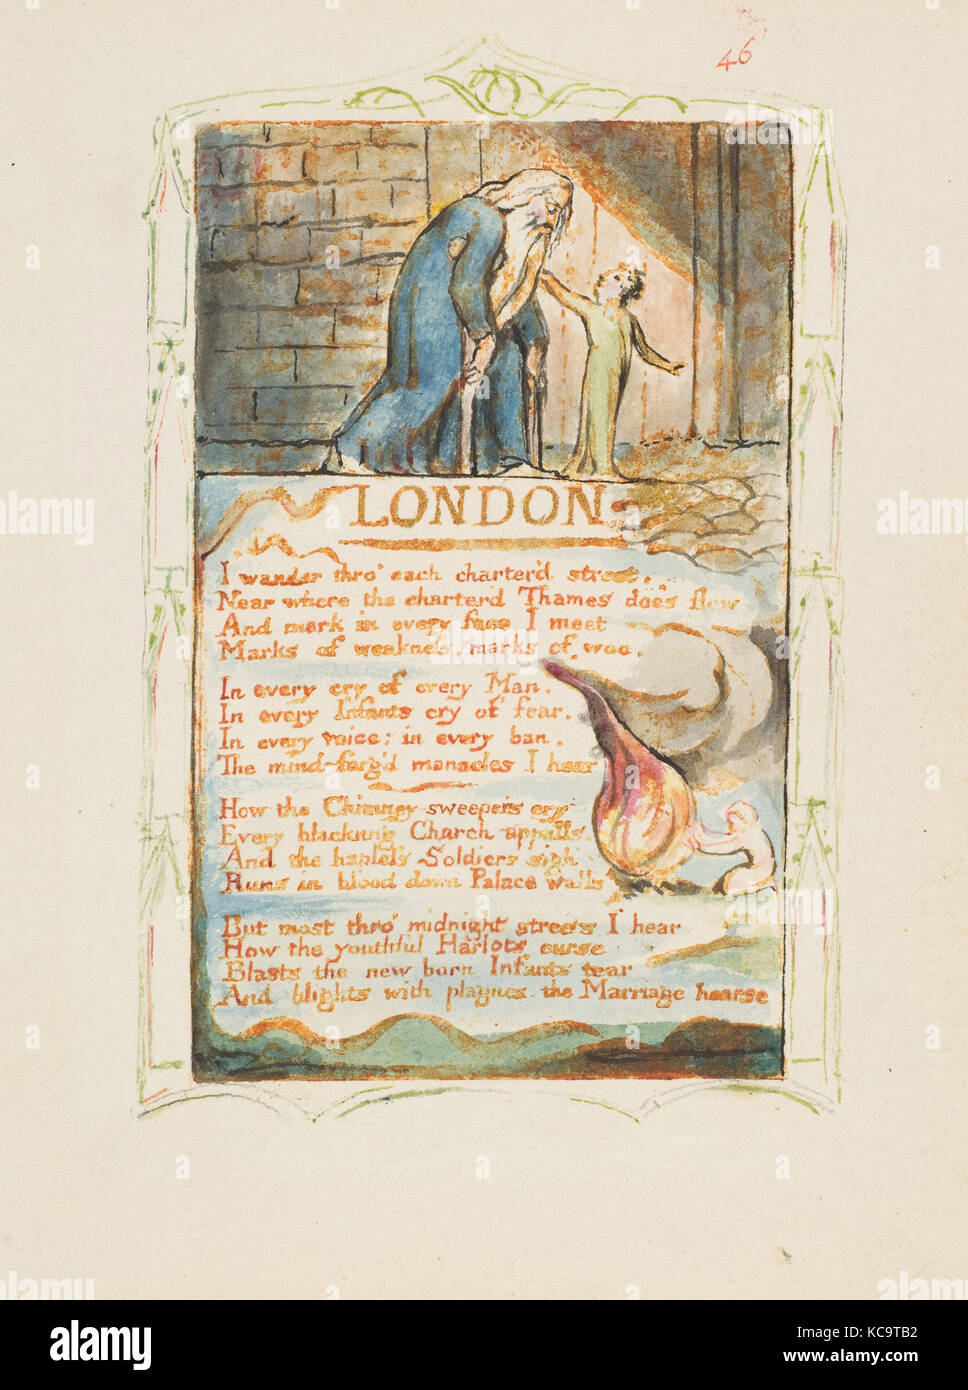 46
LONDON
I wander thro' each charter'd street,
Near where the charter'd Thames does flow
And mark in every face I meet
Marks of weakness, marks of woe.
In every cry of every Man,
In every Infants cry of fear,
In every voice; in every ban,
The mind-forg'd manacles I hear
How the Chimney-sweepers cry
Every blackning Church appalls,
And the hapless Soldiers sigh
Runs in blood down Palace walls
But most thro' midnight streets I hear
How the youthful Harlots curse
Blasts the new born Infants tear
And blights with plagues the Marriage hearse
alamy
Image ID: KC9TB2
www.alamy.com